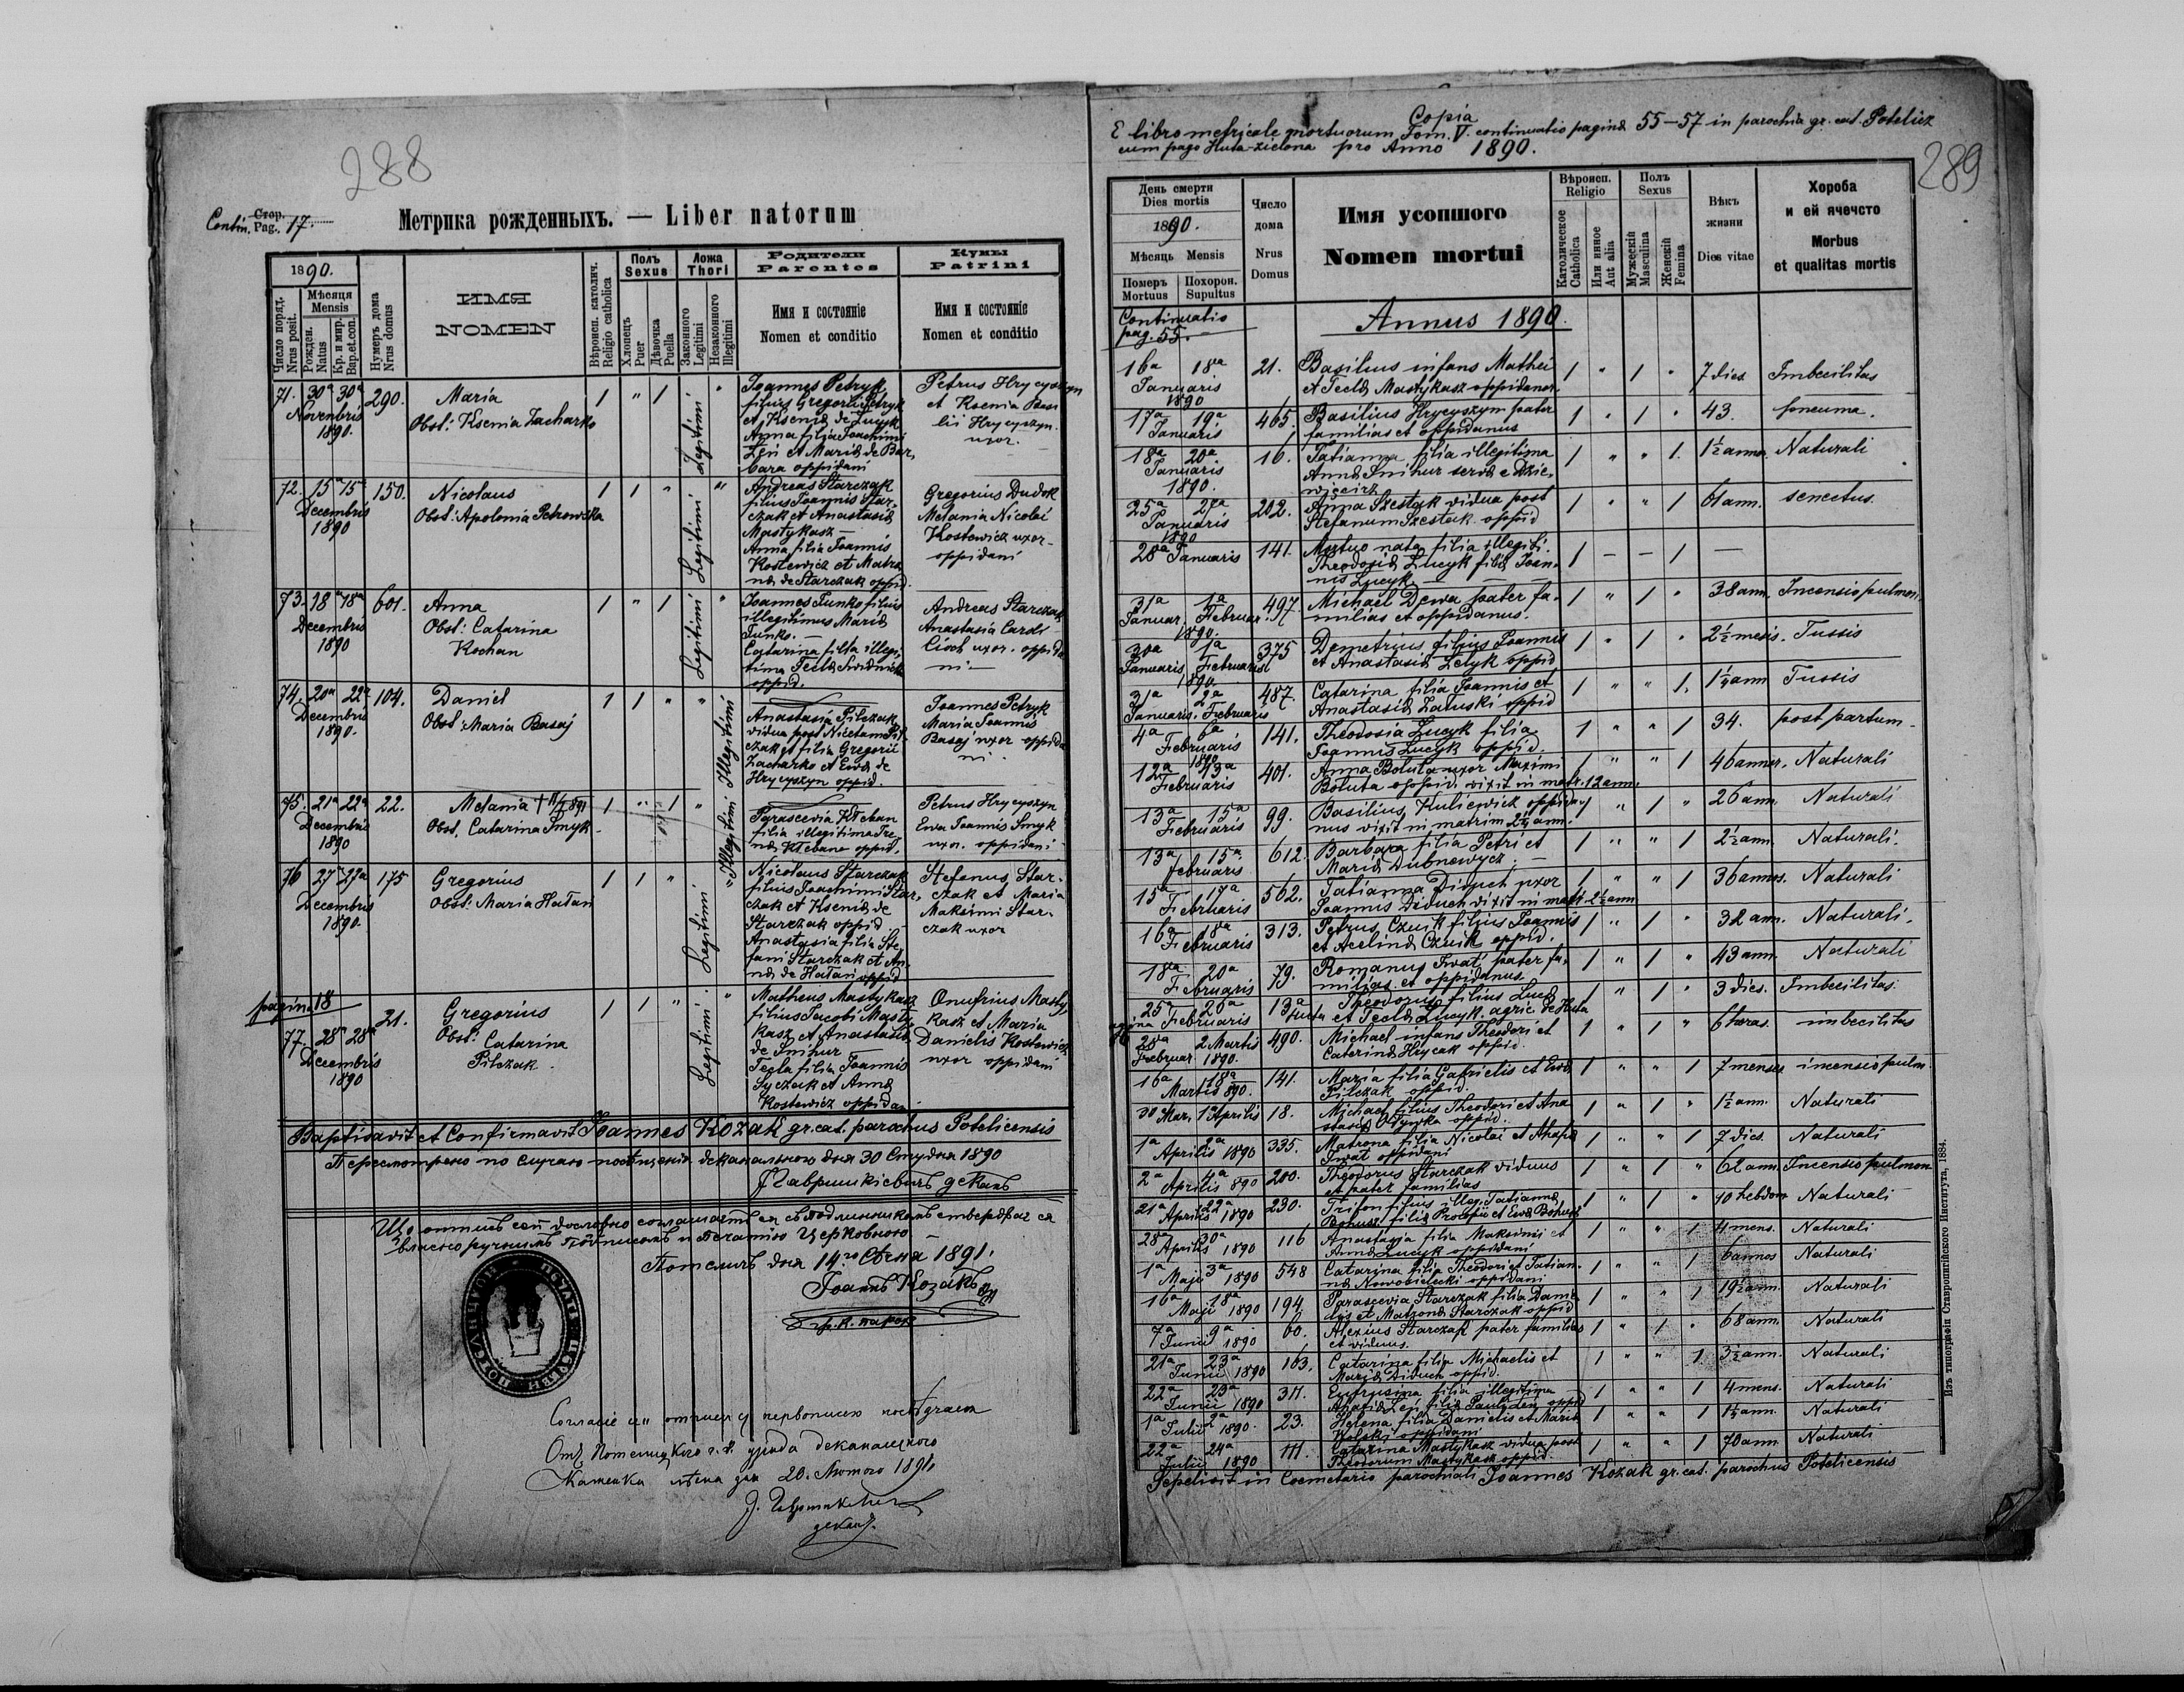 288
Contin. Стор. Pag. 17.
Метрика рожденныхъ. — Liber natorum
1890.
Число поряд. Nrus posit.
Мѣсяця Mensis
Рожден. Natus
Кр. и мир. Bap.et.con.
Нумеръ дома Nrus domus
ИМЯ
NOMEN
Вѣроисп. католич. Religio catholica
Полъ Sexus
Хлопецъ Puer
Дѣвочка Puella
Ложа Thori
Законного Legitimi
Незаконного Illegitimi
Родители Parentes
Имя и состоянiе
Nomen et conditio
Кумы Patrini
Имя и состоянiе
Nomen et conditio
71. 30a 30a 290. Maria 1 " 1 Legitimi "
Novembris 1890.
Obst: Ksenia Zacharko
Joannes Petryk
filius Gregorii Petryk
et Ksenia de Lucyk
Anna filia Joachimi
Zeń et Maria de Bar
bara oppidani
Petrus Hrycyszyn
et Ksenia Basi
lii Hrycyszyn
uxor.
72. 15a 15a 150. Nicolaus 1 1 " Legitimi "
Decembris 1890
Obst: Apolonia Petrowska
Andreas Starczak
filius Joannis Star,
czak et Anastasia
Mastykasz
Anna filia Joannis
Kostewicz et Matro
na de Starczak oppid.
Gregorius Dudok
Melania Nicolai
Kostewicz uxor-
oppidani
73. 18a 18a 601. Anna 1 " 1 Legitimi "
Decembris 1890
Obst: Catarina
Kochan
Joannes Funko filius
illegitimus Maria
Funko. —
Catarina filia illegi,
tima Tecla
oppid.
Andreas Starczak
Anastasia
uxor. oppida
ni —
74. 20a 22a 104. Daniel 1 1 " " Illegitimi
Decembris 1890.
Obst: Maria Basaj
Anastasia Pilczak
vidua post Nicetam Pil
czak et filia Gregorii
Zacharko et Ewa de
Hrycyszyn oppid.
Joannes Petryk
Maria Joannis
Basaj uxor oppida
ni.
75. 21a 22a 22. Melania 1 " 1 " Illegitimi
Decembris 1890
Obst. Catarina Smyk
Parascevia Kleban
filia illegitima Ire,
na Klebane oppid.
Petrus Hrycyszyn
Ewa Joannis Smyk
uxor. oppidani
76 27a 27a 175 Gregorius 1 1 " Legitimi
Decembris 1890.
Obst: Maria Hałan
Nicolaus Starczak
filius Joachimi Star,
czak et Ksenia de
Starczak oppid
Anastasia filia Ste,
fani Starczak et An,
na de Hałan oppid
Stefanus Star-
czak et Maria
Maksimi Star-
czak uxor
pagina 18
77. 28a 28a 21. Gregorius 1 1 " Legitimi "
Decembris 1890
Obst: Catarina
Pilczak.
Matheus Mastykasz
filius Jacobi Masty
kasz et Anastasia
de Snihur
Tecla filia Joannis
Syczak et Anna
Kostewicz oppidan
Onufrius Masty,
kasz et Maria
Danielis Kostewicz
uxor oppidani
Baptisavit et Confirmavit Joannes Kozak gr. cat. parochus Potelicensis
Пересмотрено по случаю посѣщенія деканального дня 30 Студня 1890
Гаврышкіевичъ деканъ
Що отпись сей дословно согласается съ подлинникомъ стверджае ся
власноручнымъ подписомъ и печатію церковною —
Потеличъ дня 14го Сѣчня 1891.
Іоаннъ Козакъ
гр. к. парохъ
Согласіе отписи съ первописею посвѣдчаю
Отъ Потелицкого г. к. уряда деканального
Каменка лѣсна дня 20. Лютого 1891
деканъ.
Copia
E libro metricale mortuorum Tom. V. continuatio pagina 55-57 in parochia gr. cat. Potelicz
cum pago Huta-zielona pro Anno 1890.
289
День смерти Dies mortis
1890.
Мѣсяць Mensis
Померъ Mortuus
Похорон. Supultus
Число дома Nrus Domus
Имя усопшого
Nomen mortui
Вѣроисп. Religio
Католическое Catholica
Или инное Aut alia
Полъ Sexus
Мужескій Masculina
Женскій Femina
Вѣкъ жизни Dies vitae
Хороба и ей ячечсто
Morbus et qualitas mortis
Continuatio pag. 55. —
Annus 1890.
16a 18a Januaris 1890 21. Basilius infans Mathei et Tecla Mastykasz oppidanor. 1 " 1 " 7 dies Imbecilitas
17a 19a Januaris 465. Basilius Hrycyszyn pater familias et oppidanus 1 " 1 " 43. pneuma.
18a 20a Januaris 1890. 16. Tatianna filia illegitima Anna Snihur serva e 1 " " 1. 1½ annor. Naturali
25a 27a Januaris 1890 202. Anna Szestak vidua post Stefanum Szestak oppid 1 " " 1 61 ann. senectus.
28a Januaris 141. Mortuo nata filia illegiti. Theodosia Lucyk filia Joan- nis Lucyk — 1 — — 1 —
31a Januar. 1a Februar. 1890. 497. Michael Dewa pater fa- milias et oppidanus. 1 " 1 " 38 ann. Incensio pulmon.
30a Januaris 1a Februaris 1890. 375 Demetrius filius Joannis et Anastasia Zelyk oppid 1 " 1 " 2½ mens. Tussis
31a Januaris. 2a Februaris 487. Catarina filia Joannis et Anastasia Załuski oppid 1 " " 1. 1¼ ann Tussis
4a 6a Februaris 1890 141. Theodosia Lucyk filia Joannis Lucyk oppid. 1 " " 1 34. post partum.
12a 13a Februaris 401. Anna Boluta uxor Maximi Boluta oppid. vixit in matr. 12 ann. 1 " " 1 46 annor. Naturali
13a 15a Februaris 99. Basilius Huliewicz oppida- nus vixit in matrim 2½ ann. 1 " 1 " 26 ann. Naturali
13a 15a februaris 612. Barbara filia Petri et Maria Dubnewycz. — 1 " " 1 2½ ann. Naturali.
15a 17a Februaris 562. Tatianna Diduch uxor Joannis Diduch vixit in matr. 2½ ann 1 " " 1 36 annos. Naturali
16a 18a Februaris 313. Petrus Czuik filius Joannis et Acelina Czuik oppid. 1 " 1 " 32 ann. Naturali.
18a 20a Februaris 79. Romanus Iwat pater fa- milias et oppidanus. 1 " 1 " 43 ann. Naturali
25a 26a Februaris 13a Huta Theodorus filius Luca et Tecla Lucyk. agric de Huta 1 " 1 " 3 dies. Imbecilitas.
28a Februar 2 Martis 1890. 490. Michael infans Theodori et Caterina Hrycak oppid. 1 " 1 " 6 horas. imbecilitas
16a 18a Martis 890. 141. Maria filia Gabrielis et Ewa Pilczak oppid. 1 " " 1 7 menses incensio pulm.
30 Mar. 1a Aprilis 18. Michael filius Theodori et Ana stasia oppid. 1 " 1 " 1½ ann. Naturali
1a 2a Aprilis 1890 335. Matrona filia Nicolai et Ahafia Iwat oppidani 1 " " 1 7 dies. Naturali
2a 4a Aprilis 1890 200. Theodorus Starczak viduus et pater familias 1 " 1 " 62 ann. Incensio pulmon.
21a 22a Aprilis 1890 230. Trifon filius illeg. Tatianna Bohusz filia Procopii et Ewa Bohusz 1 " 1 " 10 hebdom Naturali
28a 30a Aprilis 1890 116 Anastasia filia Maksimi et Anna Lucyk oppidani 1 " " 1 4 mens. Naturali
1a 3a Maji 1890 548 Catarina filia Theodori et Tatian- na Nowosielecki oppidani 1 " " 1 6 annos Naturali
16a 18a Maji 1890 194. Parascevia Starczak filia Danie lis et Matrona Starczak oppid 1 " " 1 19½ ann. Naturali
7a 9a Junii 1890 60. Alexius Starczak pater familias et viduus. 1 " 1 " 68 ann. Naturali
21a 23a Junii 1890 163. Catarina filia Michaelis et Maria Diduch oppid. 1 " " 1 3½ ann. Naturali
22a 23a Junii 1890 311. Eufrusina filia illegitima Ahafia Zeń filia Pauli Zeń oppid 1 " " 1 4 mens. Naturali
1a 2a Julii 1890. 23. Helena filia Danielis et Maria Wolski oppidani 1 " " 1 1½ ann. Naturali
22a 24a Julii 1890 111. Catarina Mastykasz vidua post Theodorum Mastykasz oppid. 1 " " 1 70 ann Naturali
Sepelivit in Coemetario parochiali Joannes Kozak gr. cat. parochus Potelicensis
Изъ типографіи Ставропигійского Института, 1884.